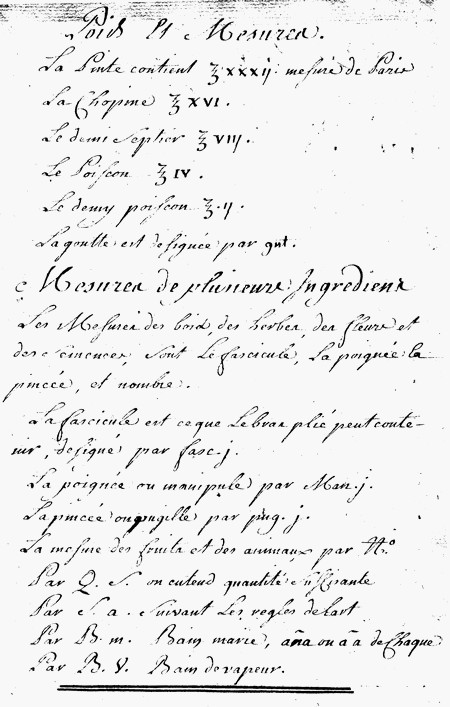 Poids Et Mesures.
La Pinte contient ℥ XXXIJ. mesure de Paris
La Chopine ℥ XVI.
Le demi Septier ℥ VIII.
Le Poisson ℥ IV.
Le demy poisson ℥. ij.
La goutte est designée par gut.
Mesures de plusieurs Ingrediens
Les Mesures des bois, des herbes, des fleurs et
des semences, sont Le fascicule, La poignée la
pincée, et nombre.
La fascicule est ce que Le bras plié peut conte-
nir, designé par fasc. j.
La poignée ou manipule par Man. j.
La pincée ou pugille par pug. j.
La mesure des fruits et des animaux par N.º
Par Q. S. on entend quantité Suffisante
Par S. a. Suivant Les regles de lart
Par B. m. Bain marie, aña ou ãa de Chaque
Par B. V. Bain de vapeur.